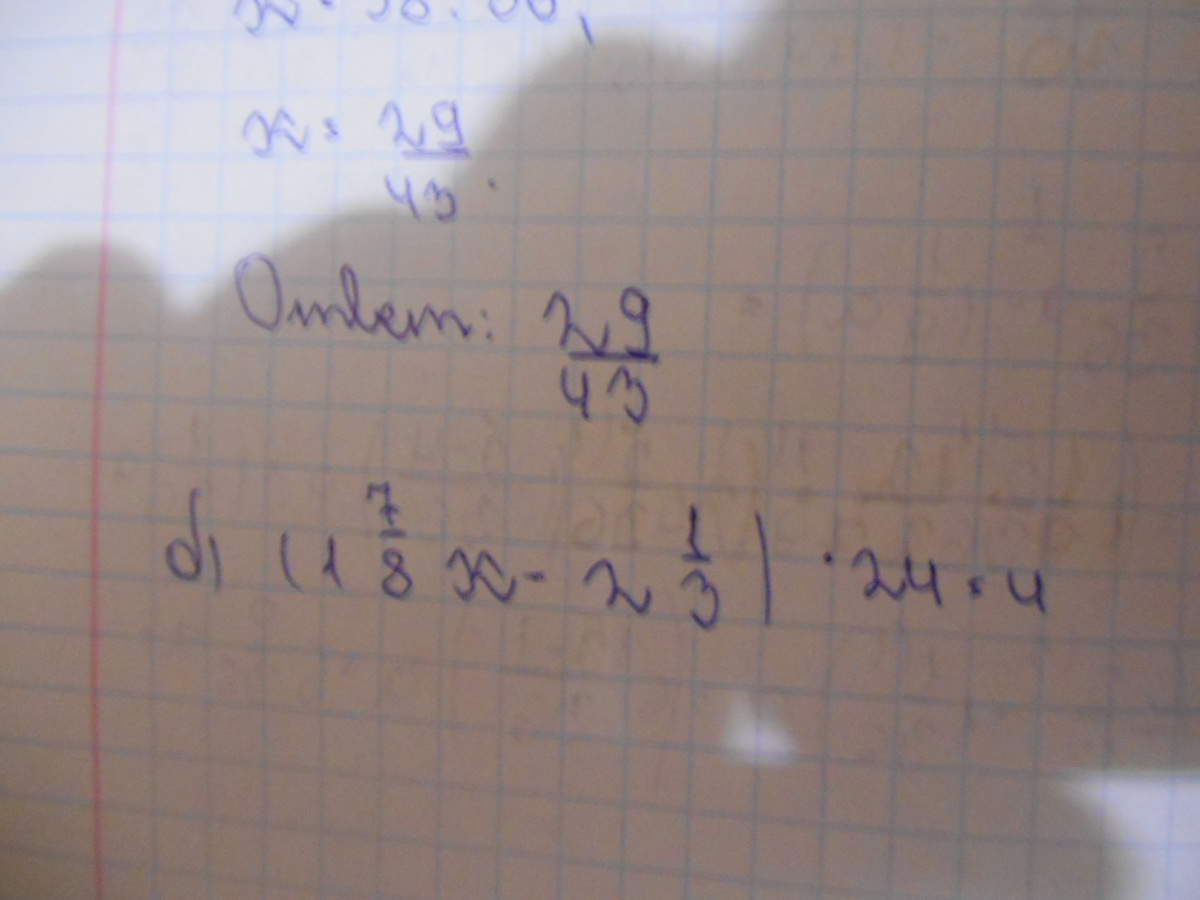 x = 29/43.
Ответ: 29/43
б) (1 7/8 x - 2 1/3) · 24 = 4